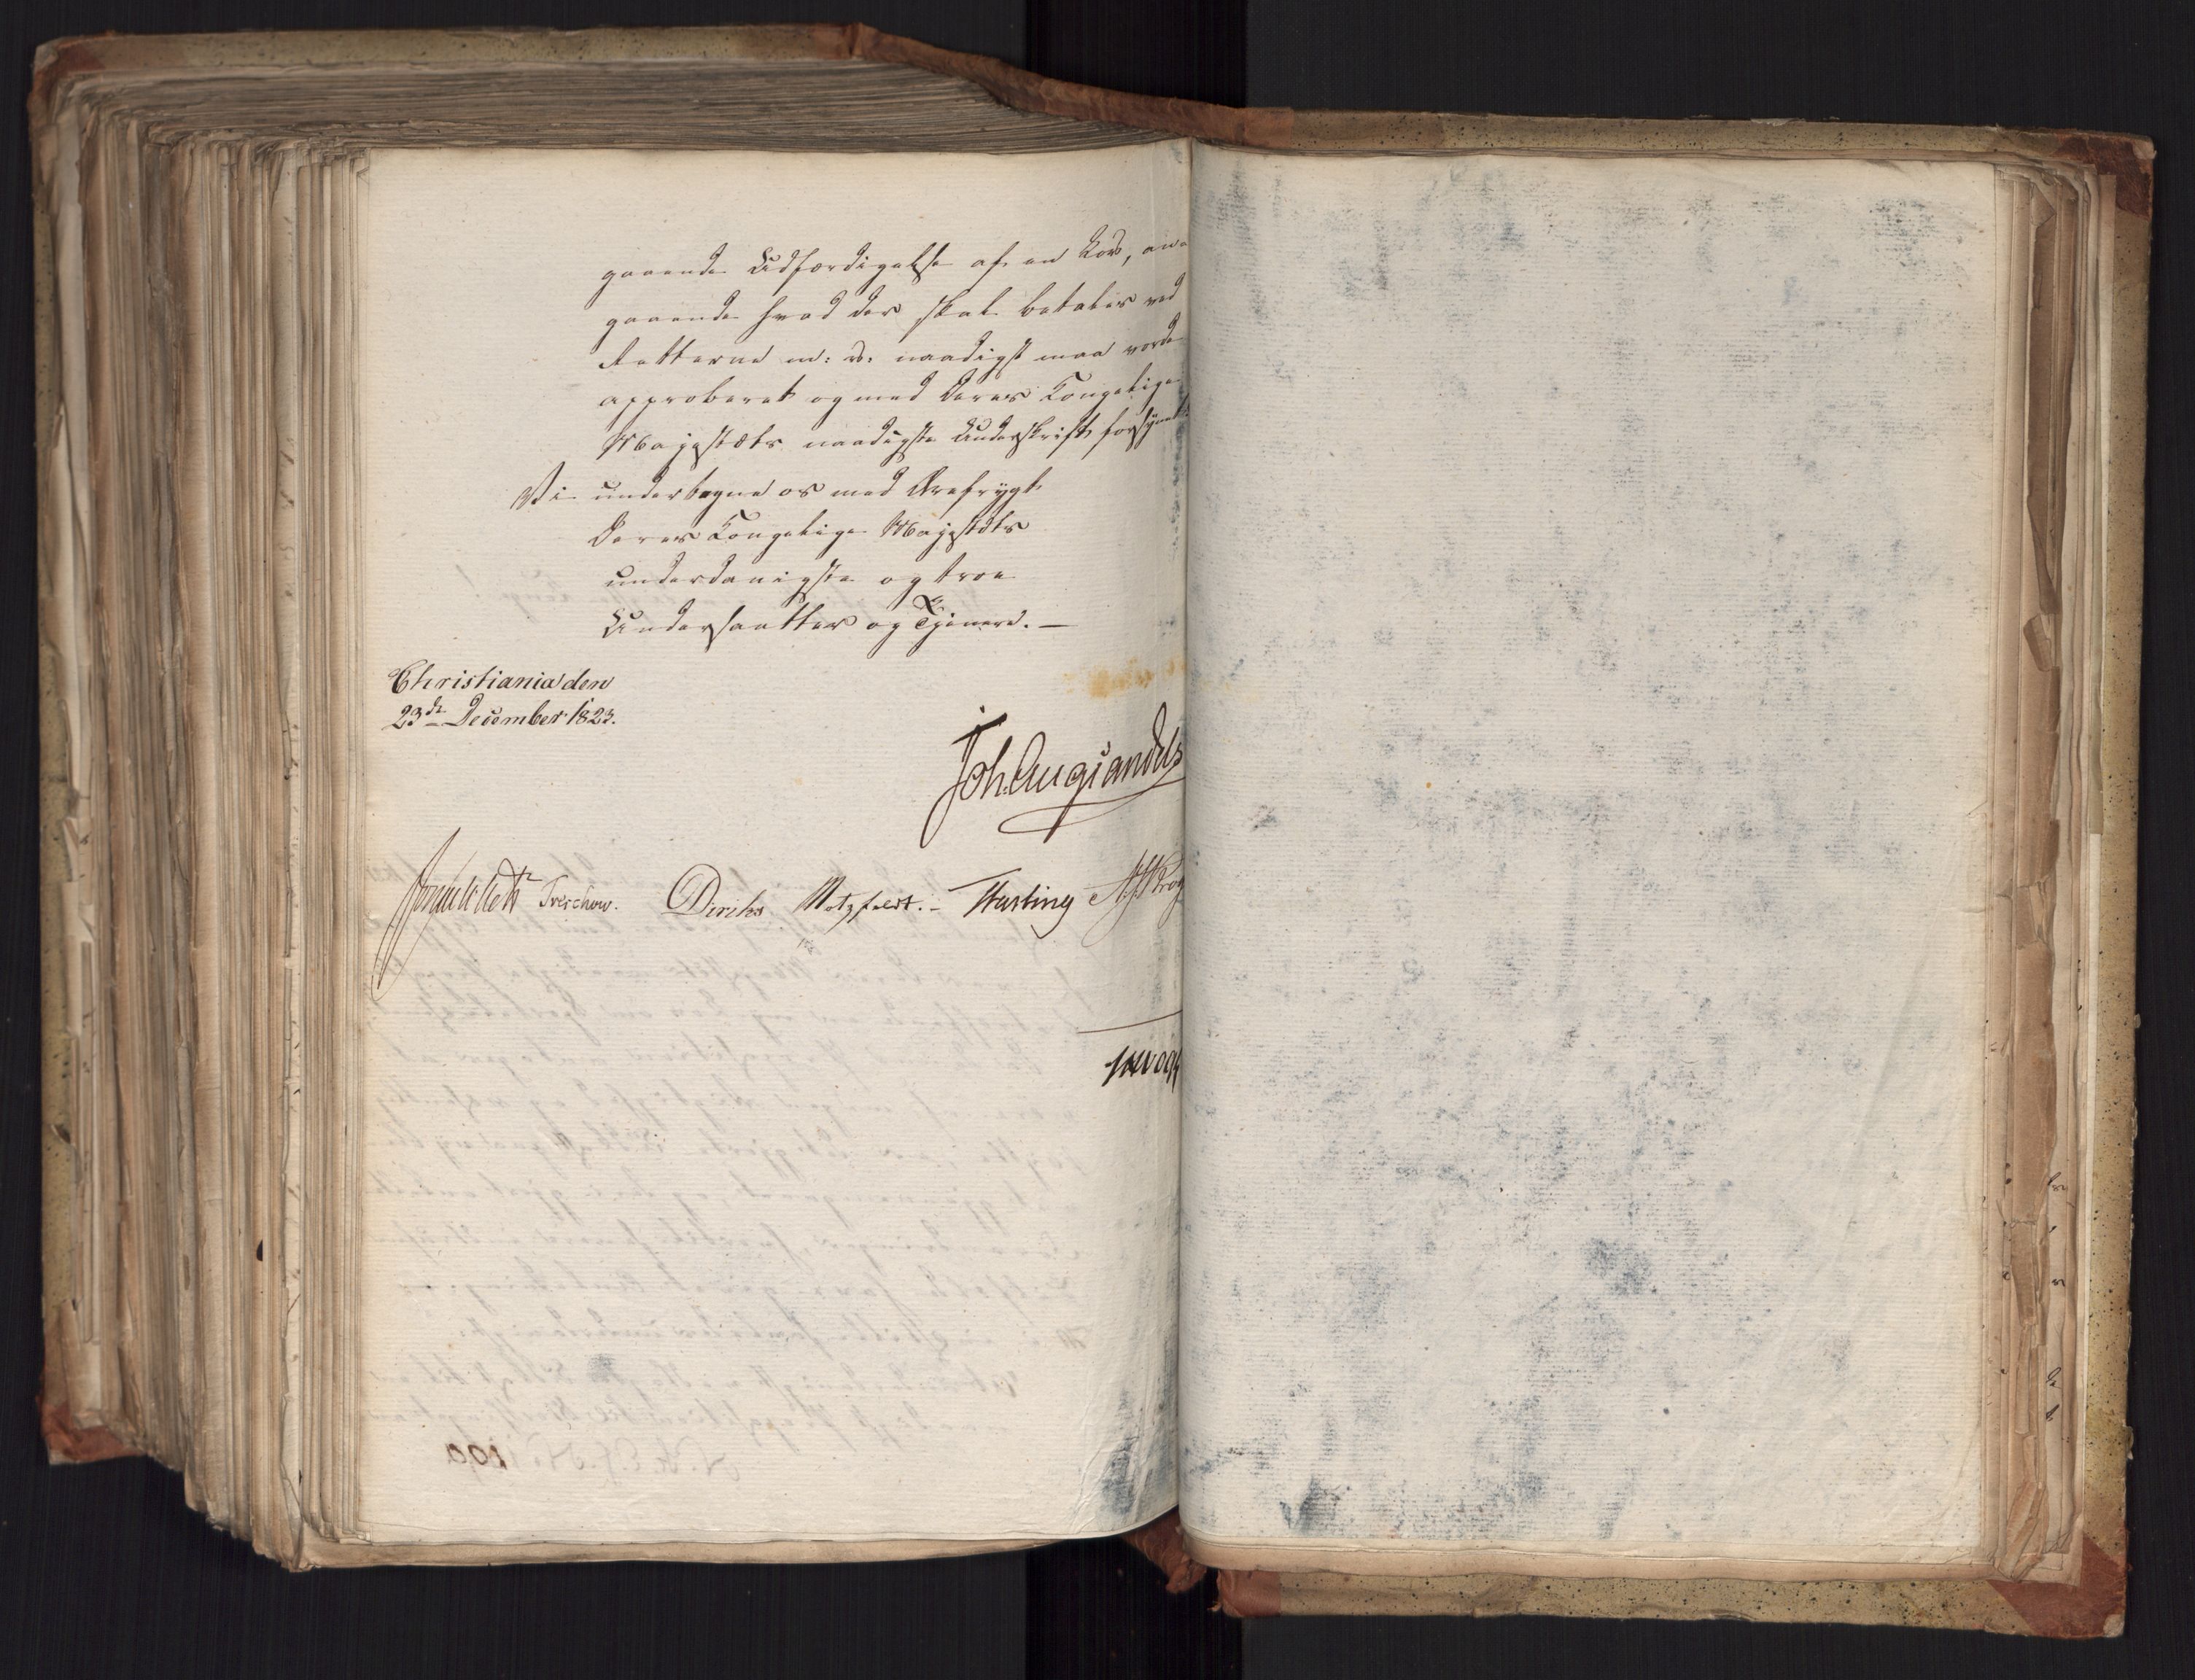 gaaende Udfærdigelse af en Lov, an-
gaaende hvad der skal betales ved
Retterne m: v: naadigst maa vorde
approberet og med Deres Kongelige
Majestæts naadigste Underskrift forsynet.
Vi undertegne os med Ærefrygt
Deres Kongelige Majestæts
underdanigste og troe
Undersaatter og Tjenere. —
Christiania den
23de December 1823.
Joh. Aug Sandels
Sommerhielm Treschow. Diriks Motzfeldt. Fasting